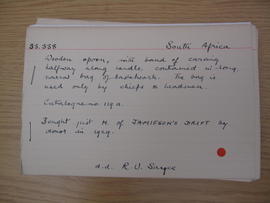 35.358 South Africa
Wooden spoon, with band of carving
halfway along handle, contained in long
narrow bag of basketwork. The bag is
used only by chiefs & headmen.
Catalogue no 119a.
Bought just N. of JAMIESON'S DRIFT by
donor in 1929.
d.d. R. U. Sayce